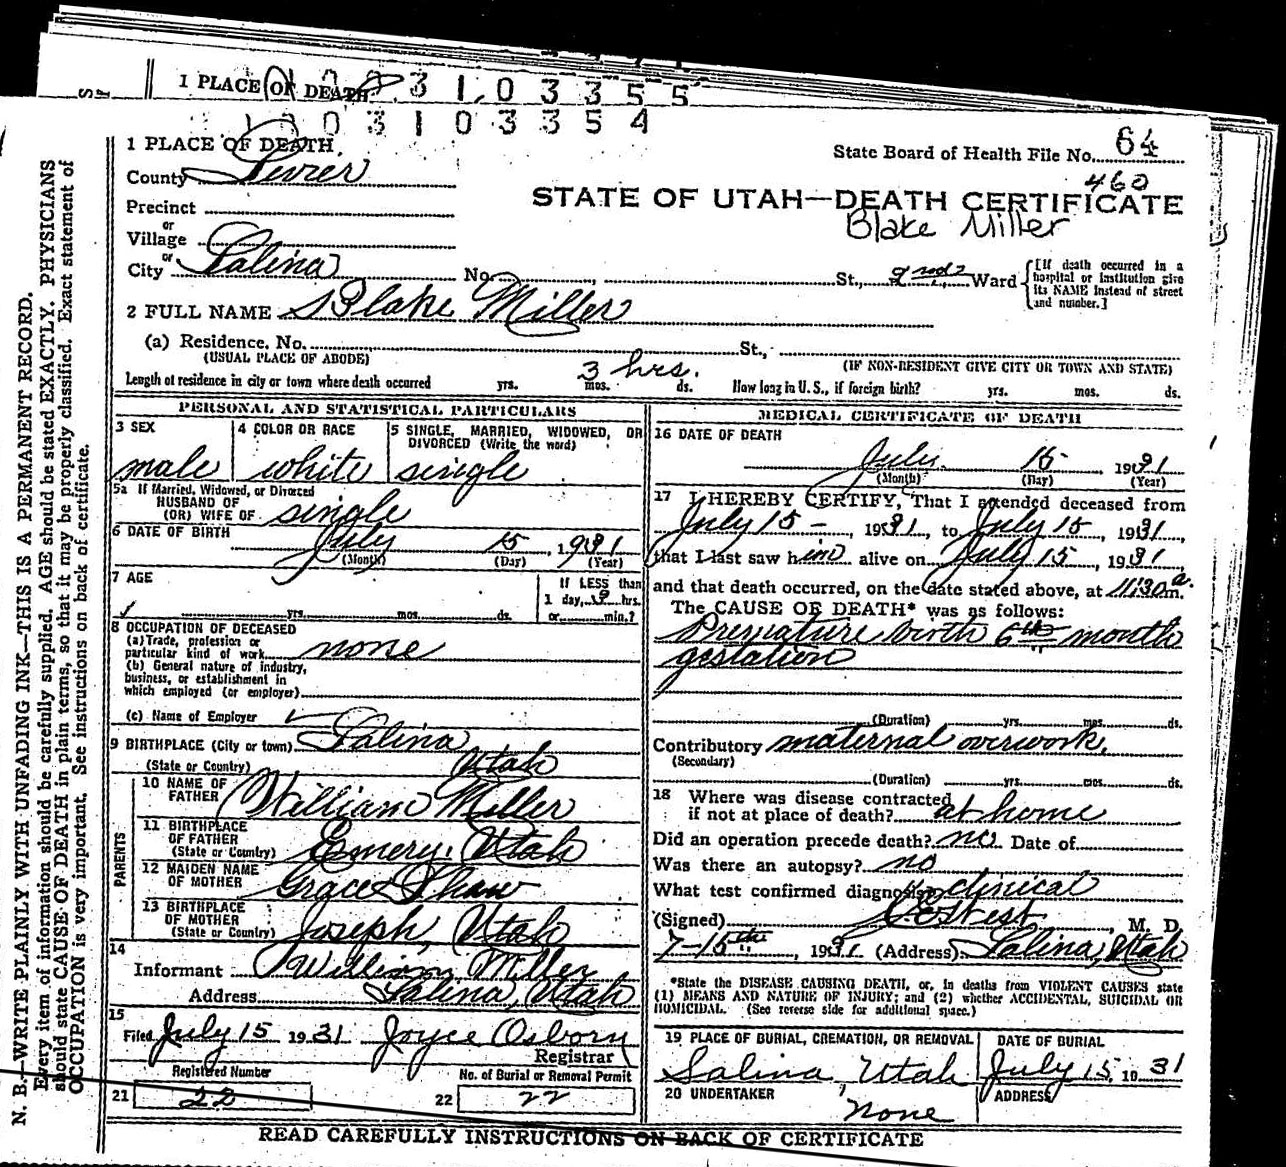 1 PLACE OF DEATH 3 1 0 3 3 5 5
1 0 0 3 1 0 3 3 5 4
1 PLACE OF DEATH
State Board of Health File No. 64
County Sevier
460
STATE OF UTAH—DEATH CERTIFICATE
Precinct
Blake Miller
or
Village
or
City Salina No. St., 2nd Ward
[If death occurred in a hospital or institution give its NAME instead of street and number.]
2 FULL NAME Blake Miller
(a) Residence. No. St.,
(USUAL PLACE OF ABODE) (IF NON-RESIDENT GIVE CITY OR TOWN AND STATE)
3 hrs.
Length of residence in city or town where death occurred yrs. mos. ds. How long in U.S., if foreign birth? yrs. mos. ds.
PERSONAL AND STATISTICAL PARTICULARS
3 SEX 4 COLOR OR RACE 5 SINGLE, MARRIED, WIDOWED, OR DIVORCED (Write the word)
male white single
5a If Married, Widowed, or Divorced
HUSBAND OF
(OR) WIFE OF single
6 DATE OF BIRTH July 15, 1931
(Month) (Day) (Year)
7 AGE If LESS than
1 day, hrs.
yrs. mos. ds. or min.?
8 OCCUPATION OF DECEASED
(a) Trade, profession or
particular kind of work none
(b) General nature of industry,
business, or establishment in
which employed (or employer)
(c) Name of Employer
9 BIRTHPLACE (City or town) Salina
(State or Country) Utah
PARENTS
10 NAME OF FATHER William Miller
11 BIRTHPLACE OF FATHER
(State or Country) Emery, Utah
12 MAIDEN NAME OF MOTHER Grace Shaw
13 BIRTHPLACE OF MOTHER
(State or Country) Joseph, Utah
14
Informant William Miller
Address Salina, Utah
15
Filed July 15 1931 Joyce Osborn
Registrar
Registered Number No. of Burial or Removal Permit
21 22 22 22
MEDICAL CERTIFICATE OF DEATH
16 DATE OF DEATH
July 15 1931
(Month) (Day) (Year)
17 I HEREBY CERTIFY, That I attended deceased from
July 15 - , 1931, to July 15, 1931,
that I last saw him alive on July 15, 1931,
and that death occurred, on the date stated above, at 11:30 a.m.
The CAUSE OF DEATH* was as follows:
Premature birth 6th month
gestation
(Duration) yrs. mos. ds.
Contributory maternal overwork.
(Secondary)
(Duration) yrs. mos. ds.
18 Where was disease contracted
if not at place of death? at home
Did an operation precede death? no Date of
Was there an autopsy? no
What test confirmed diagnosis? clinical
(Signed) West, M. D.
7-15th, 1931 (Address) Salina, Utah
*State the DISEASE CAUSING DEATH, or, in deaths from VIOLENT CAUSES state
(1) MEANS AND NATURE OF INJURY; and (2) whether ACCIDENTAL, SUICIDAL OR
HOMICIDAL. (See reverse side for additional space.)
19 PLACE OF BURIAL, CREMATION, OR REMOVAL DATE OF BURIAL
Salina, Utah July 15, 1931
20 UNDERTAKER ADDRESS
none
READ CAREFULLY INSTRUCTIONS ON BACK OF CERTIFICATE
N. B.—WRITE PLAINLY WITH UNFADING INK—THIS IS A PERMANENT RECORD.
Every item of information should be carefully supplied. AGE should be stated EXACTLY. PHYSICIANS
should state CAUSE OF DEATH in plain terms, so that it may be properly classified. Exact statement of
OCCUPATION is very important. See instructions on back of certificate.